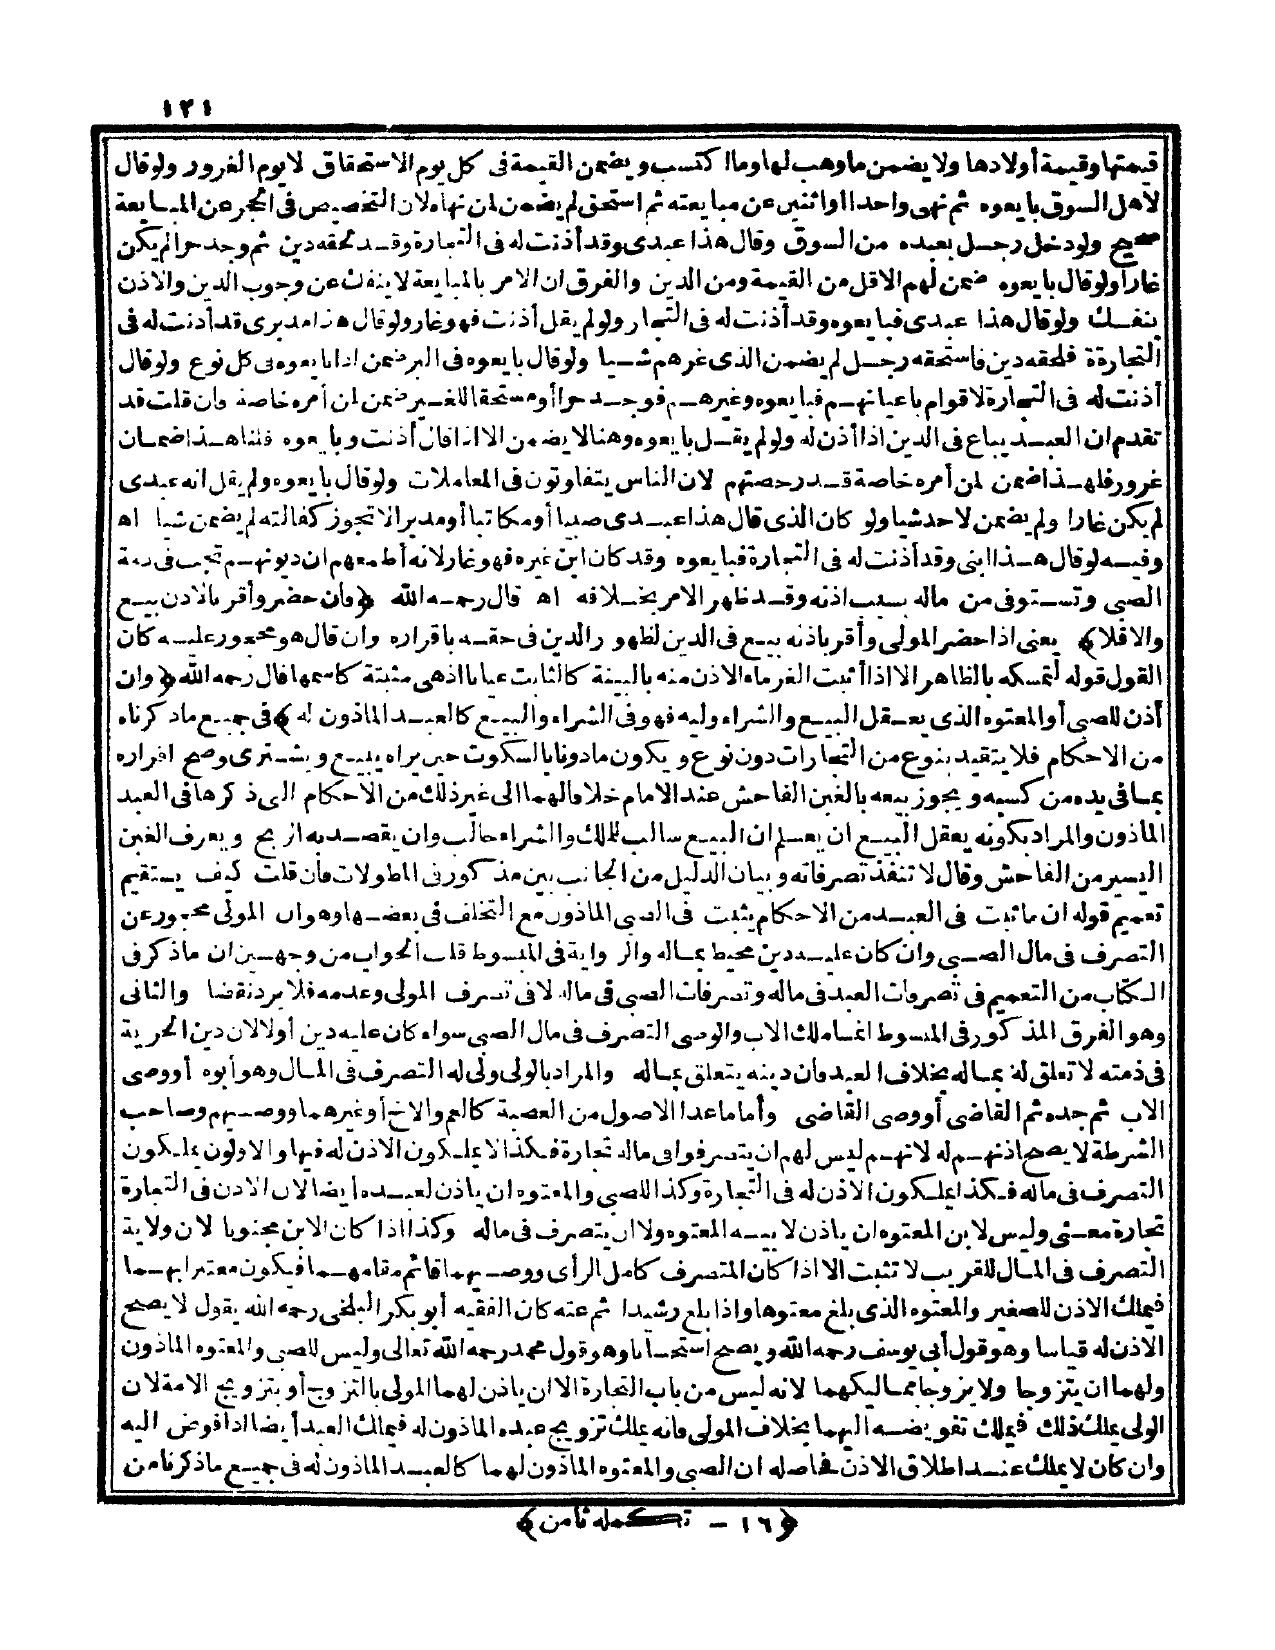 ١٢١
قيمتها وقيمة أولادها ولا يضمن ما وهب لها وما اكتسب ويضمن القيمة فى كل يوم الاستحقاق لا يوم الغرور ولو قال
لاهل السوق بايعوه ثم نهى واحدا أو اثنين عن مبايعته ثم استحق لم يضمن لمن نهاه لان التخصيص فى الحجر عن المبايعة
صحيح ولو دخل رجل بعبده من السوق وقال هذا عبدى وقد أذنت له فى التجارة وقد لحقه دين ثم وجد حرا لم يكن
غارا ولو قال بايعوه ضمن لهم الاقل من القيمة ومن الدين والفرق ان الامر بالمبايعة لا ينفك عن وجوب الدين والاذن
ينفك ولو قال هذا عبدى فبايعوه وقد أذنت له فى التجار ولو لم يقل أذنت فهو غار ولو قال هذا مدبرى قد أذنت له فى
التجارة فلحقه دين فاستحقه رجل لم يضمن الذى غرهم شيا ولو قال بايعوه فى البر ضمن اذا بايعوه فى كل نوع ولو قال
أذنت له فى التجارة لاقوام باعيانهم فبايعوه وغيرهم فوجد حرا أو مستحقا للغير ضمن لمن أمره خاصة فان قلت قد
تقدم ان العبد يباع فى الدين اذا أذن له ولو لم يقل بايعوه وهنا لا يضمن الا اذا قال أذنت وبايعوه قلنا هذا ضمان
غرور فلهذا ضمن لمن أمره خاصة قد رخصتهم لان الناس يتفاوتون فى المعاملات ولو قال بايعوه ولم يقل انه عبدى
لم يكن غارا ولم يضمن لاحد شيا ولو كان الذى قال هذا عبدى صبيا أو مكاتبا أو مدبرا لا تجوز كفالته لم يضمن شيا اه
وفيه لو قال هذا ابنى وقد أذنت له فى التجارة فبايعوه وقد كان ابن غيره فهو غار لانه أطمعهم ان ديونهم تجب فى رمة
الصبى وتستوفى من ماله بسبب اذنه وقد ظهر الامر بخلافه اه قال رحمه الله ﴿فان حضر وأقر بالاذن بيع
والا فلا﴾ يعنى اذا حضر المولى وأقر باذنه بيع فى الدين لظهور الدين فى حقه باقراره وان قال هو محجور عليه كان
القول قوله لتمسكه بالظاهر الا اذا أثبت الغرماء الاذن منه بالبينة كالثابت عيانا اذ هى مثبتة كاسمها قال رحمه الله ﴿وان
أذن للصبى أو المعتوه الذى يعقل البيع والشراء وليه فهو فى الشراء والبيع كالعبد المأذون له﴾ فى جميع ما ذكرناه
من الاحكام فلا يتقيد بنوع من التجارات دون نوع ويكون مأذونا بالسكوت حين يراه يبيع ويشترى وصح اقراره
بما فى يده من كسبه ويجوز بيعه بالغبن الفاحش عند الامام خلافا لهما الى غير ذلك من الاحكام التى ذكرها فى العبد
المأذون والمراد بكونه يعقل البيع ان يعلم ان البيع سالب للملك والشراء جالب وان يقصد به الربح ويعرف الغبن
اليسير من الفاحش وقال لا تنفذ تصرفاته وبيان الدليل من الجانبين مذكور فى المطولات فان قلت كيف يستقيم
تعميم قوله ان ما ثبت فى العبد من الاحكام يثبت فى الصبى المأذون مع التخلف فى بعضها وهو ان المولى محجور عن
التصرف فى مال الصبى وان كان عليه دين محيط بماله والرواية فى المبسوط قلت الجواب من وجهين ان ما ذكر فى
الكتاب من التعميم فى تصرفات العبد فى ماله وتصرفات الصبى فى ماله لا فى تصرف المولى وعدمه فلا يرد نقضا والثانى
وهو الفرق المذكور فى المبسوط انما ملك الاب والوصى التصرف فى مال الصبى سواء كان عليه دين أولا لان دين الحرية
فى ذمته لا تعلق له بماله بخلاف العبد فان دينه يتعلق بماله والمراد بالولى ولى له التصرف فى المال وهو أبوه أو وصى
الاب ثم جده ثم القاضى أو وصى القاضى وأما ما عدا الاصول من العصبة كالعم والاخ أو غيرهما ووصيهم وصاحب
الشرطة لا يصح اذنهم له لانهم ليس لهم ان يتصرفوا فى ماله تجارة فكذا لا يملكون الاذن له فيها والاولون يملكون
التصرف فى ماله فكذا يملكون الاذن له فى التجارة وكذا للصبى والمعتوه ان يأذن لعبده أيضا لان الاذن فى التجارة
تجارة معنى وليس لابن المعتوه ان يأذن لابيه المعتوه ولا ان يتصرف فى ماله وكذا اذا كان الابن مجنونا لان ولاية
التصرف فى المال للقريب لا تثبت الا اذا كان المتصرف كامل الرأى ووصيهما قائم مقامهما فيكون معتبرا بهما
فيملك الاذن للصغير والمعتوه الذى بلغ معتوها واذا بلغ رشيدا ثم عته كان الفقيه أبو بكر البلخى رحمه الله يقول لا يصح
الاذن له قياسا وهو قول أبى يوسف رحمه الله ويصح استحسانا وهو قول محمد رحمه الله تعالى وليس للصبى والمعتوه المأذون
ولهما ان يتزوجا ولا يزوجا مماليكهما لانه ليس من باب التجارة الا ان يأذن لهما المولى بالتزوج أو بتزويج الامة لان
الولى يملك ذلك فيملك تفويضه اليهما بخلاف المولى فانه يملك تزويج عبده المأذون له فيملك العبد أيضا اذا فوض اليه
وان كان لا يملك عند اطلاق الاذن فحاصله ان الصبى والمعتوه المأذون لهما كالعبد المأذون له فى جميع ما ذكرنا من
﴿١٦ - تكمله ثامن﴾